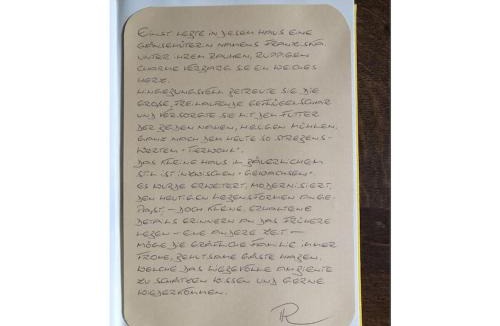 EINST LEBTE IN DIESEM HAUS EINE
GÄNSEHÜTERIN NAMENS FRANZISKA.
UNTER IHREM RAUHEN, RUPPIGEN
CHARME VERBARG SIE EIN WEICHES
HERZ.
HINGEBUNGSVOLL BETREUTE SIE DIE
GROßE, FREILAUFENDE GEFLÜGELSCHAR
UND VERSORGTE SIE MIT DEM FUTTER
DER BEIDEN NAHEN, MÜHLEN.
GANZ NACH DEM HEUTE SO STREBENS-
WERTEN "TIERWOHL".
DAS KLEINE HAUS IM BÄUERLICHEM
STIL IST INZWISCHEN "GEWACHSEN".
ES WURDE ERWEITERT, MODERNISIERT,
DEN HEUTIGEN LEBENSFORMEN ANGE-
PAßT – DOCH KLEINE, ERHALTENE
DETAILS ERINNERN AN DAS FRÜHERE
LEBEN – EINE ANDERE ZEIT –
MÖGE DIE GRÄFLICHE FAMILIE IMMER
FROHE, BEHUTSAME GÄSTE HABEN,
WELCHE DAS LIEBEVOLLE AMBIENTE
ZU SCHÄTZEN WISSEN UND GERNE
WIEDERKOMMEN.
R